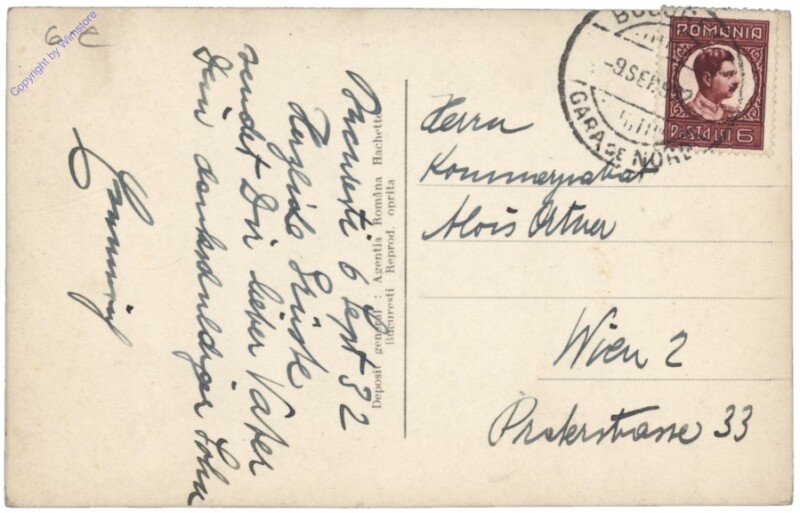 Copyright by Winstore
6.-€
Bucuresti 6 Sept 32
Herzliche Grüsse
sendet Dir lieber Vater
Dein dankschuldiger Sohn
Deposit general : Agentia Româna Hachette
Bucuresti Reprod. oprita
ROMANIA
POSTA LEI 6
BUCUR
-9 SEP. 93
GARA DE NORD
Herrn
Kommerzialrat
Alois Ortner
Wien 2
Praterstrasse 33